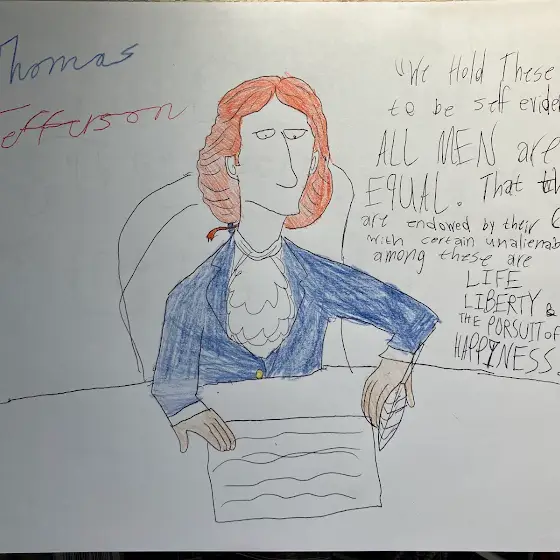 Thomas
Jefferson
"We Hold These
to be self evide
ALL MEN are
EQUAL. That th
are endowed by their C
with certain unalienab
among these are
LIFE
LIBERTY &
THE PORSUIT of
HAPPYNESS.